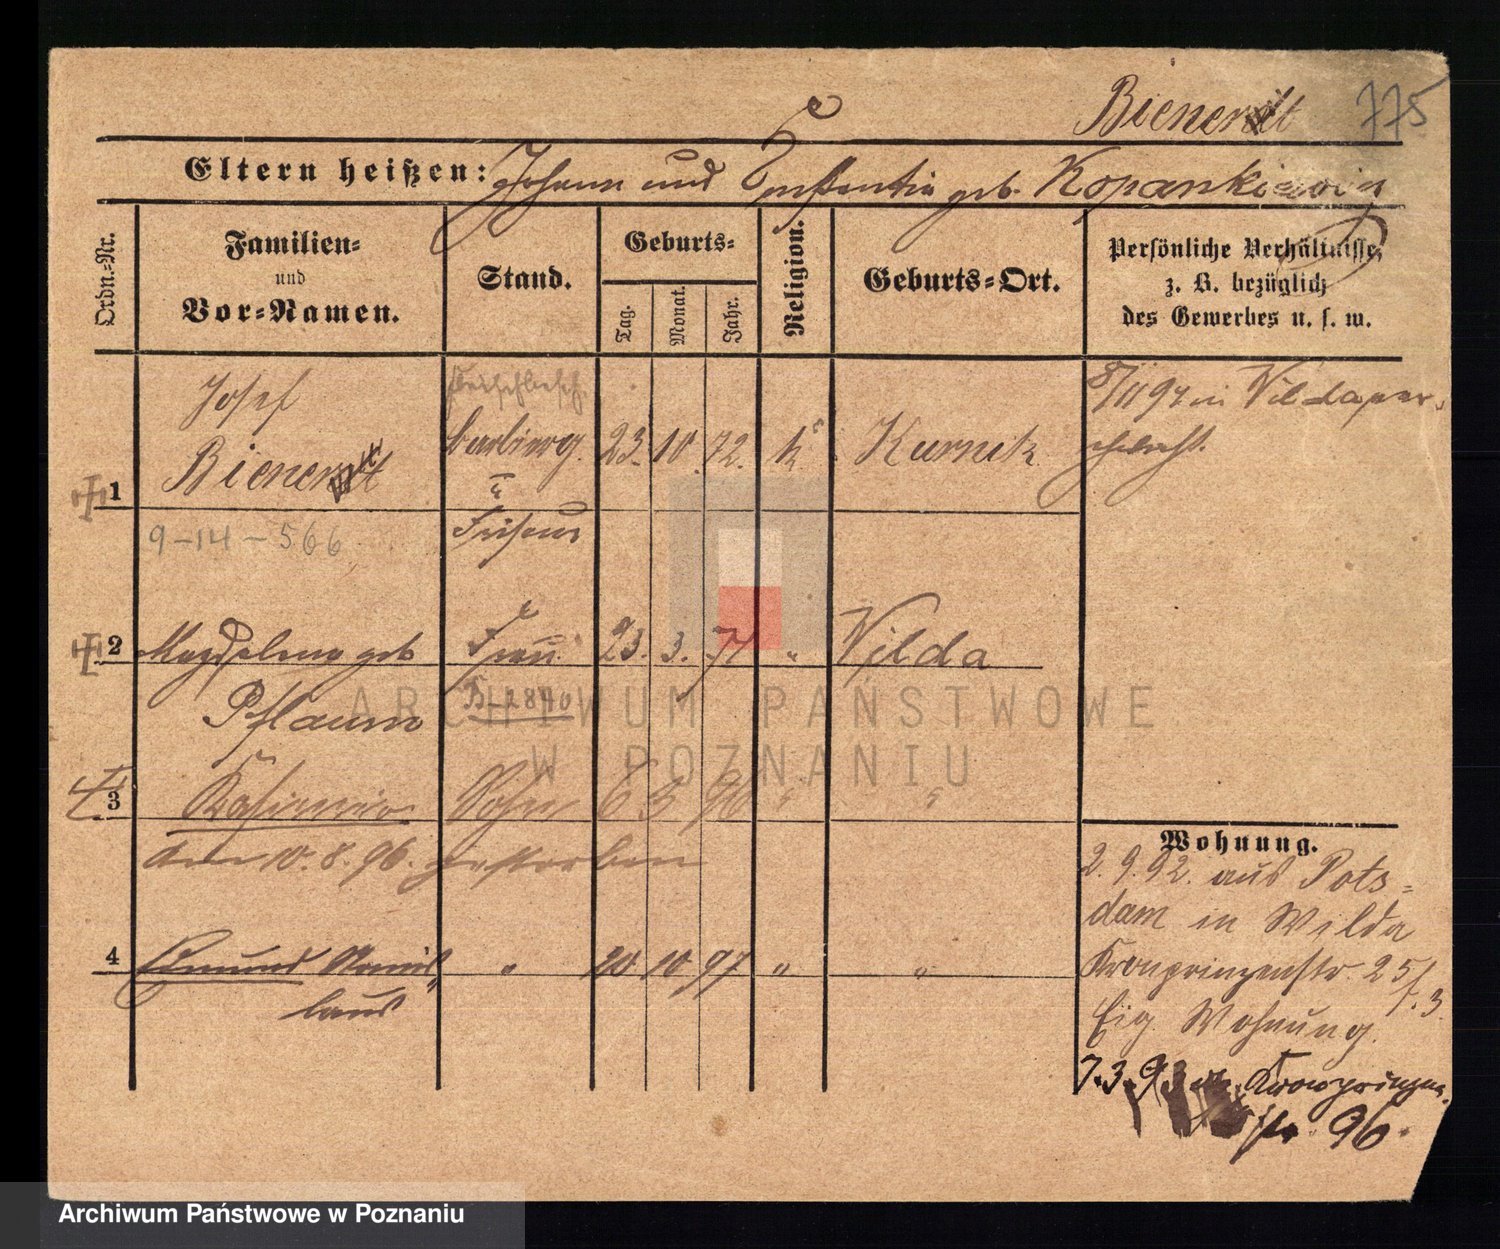 Bienert 775
Eltern heißen: Johann und Constantia geb. Kopankiewicz
Ordn.-Nr.
Familien-
und
Vor-Namen.
Stand.
Geburts-
Tag.
Monat.
Jahr.
Religion.
Geburts-Ort.
Persönliche Verhältnisse,
z. B. bezüglich
des Gewerbes u. s. w.
1
Josef
Bienert
Barbierg.
u
Friseur
23. 10. 72. k Kurnik
8/11 94 in Wilda
9-14-566
2
Magdalena geb
Pflaum
Frau
B-2840
23. 3. 71 " Wilda
3
Kasimir Sohn 6 3 96 " "
den 10. 8. 96. gestorben
4
Edmund Stanis
laus
" 20 10 97 " "
Wohnung.
2. 9. 92. aus Pots=
dam in Wilda
Kronprinzenstr. 25/
7.3
Eig. Wohnung.
7.3.93 Kronprinzen
str. 96.
ARCHIWUM PAŃSTWOWE
W POZNANIU
Archiwum Państwowe w Poznaniu